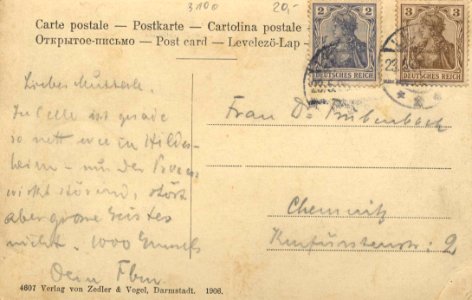 3100 20,-
Carte postale — Postkarte — Cartolina postale
Открытое-письмо — Post card — Levelező-Lap -
2 2
3 3
DEUTSCHES REICH
DEUTSCHES REICH
23
Liebes
In Celle ist gerade
so nett wie in Hildes-
heim – nur der
wirkt störend, stört
aber grosse Geistes
nicht. 1000
Dein
Frau Dr.
Chemnitz
2
4607 Verlag von Zedler & Vogel, Darmstadt. 1906.